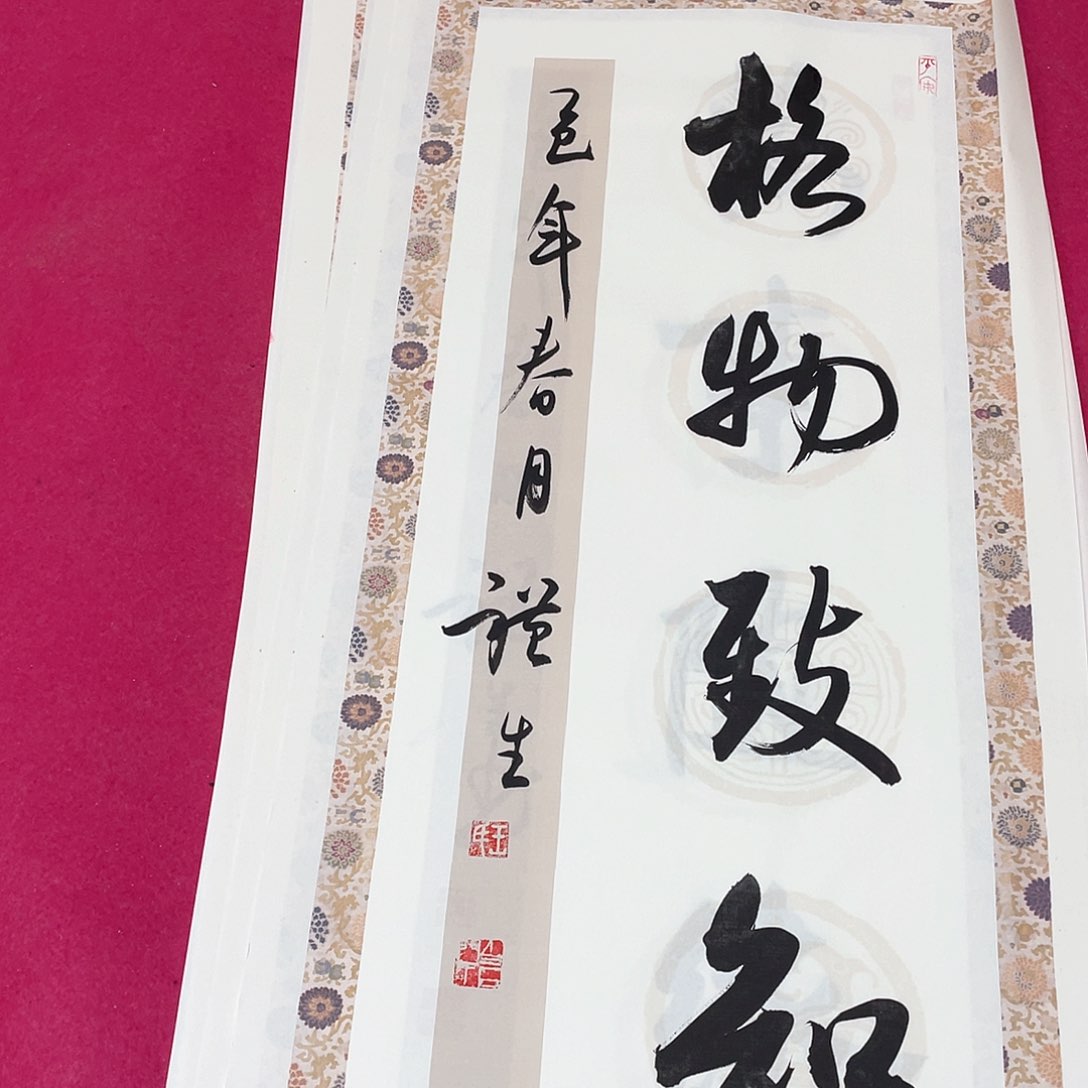 格物致知
乙巳年春月生